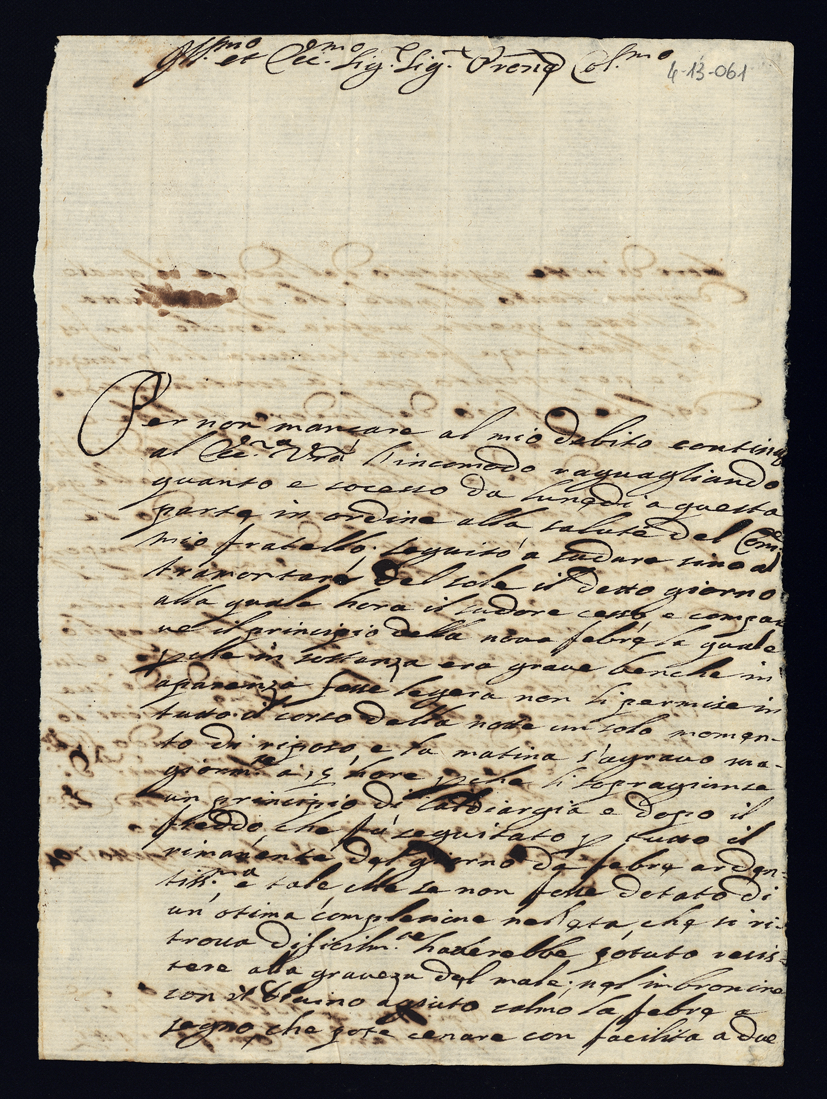 Ill.mo et Ecc.mo Sig.r Sig.r Prone Col.mo
4-13-061
Per non mancare al mio debito continuo
al Ecc.za Vra l'incomodo raguagliando
quanto e socesso da lunedi a questa
parte in ordine alla salute del
mio fratello; seguitò a sudare sino al
tramontare del sole il detto giorno
alla quale hora il sudore cessò e compar
ve il principio della nova febre la quale
p che in sostanza era grave benche in
aparenza fosse legera non li permise in
tutto il corso della notte un solo momen-
to di riposo e la matina s'agravo ma-
giorm.te a 15 hore p che li sopragiunse
un principio di cardiargia e dopo il
freddo che fu seguitato p tutto il
rimanente del giorno da febre arden-
tiss.ma e tale che se non fosse dotato di
un'otima complesione nel'eta, che si ri-
trova dificilm.te haverebbe potuto resis-
tere alla graveza del male; nel imbronire
con il divino agiuto calmo la febre a
segno che pote cenare con facilita a due